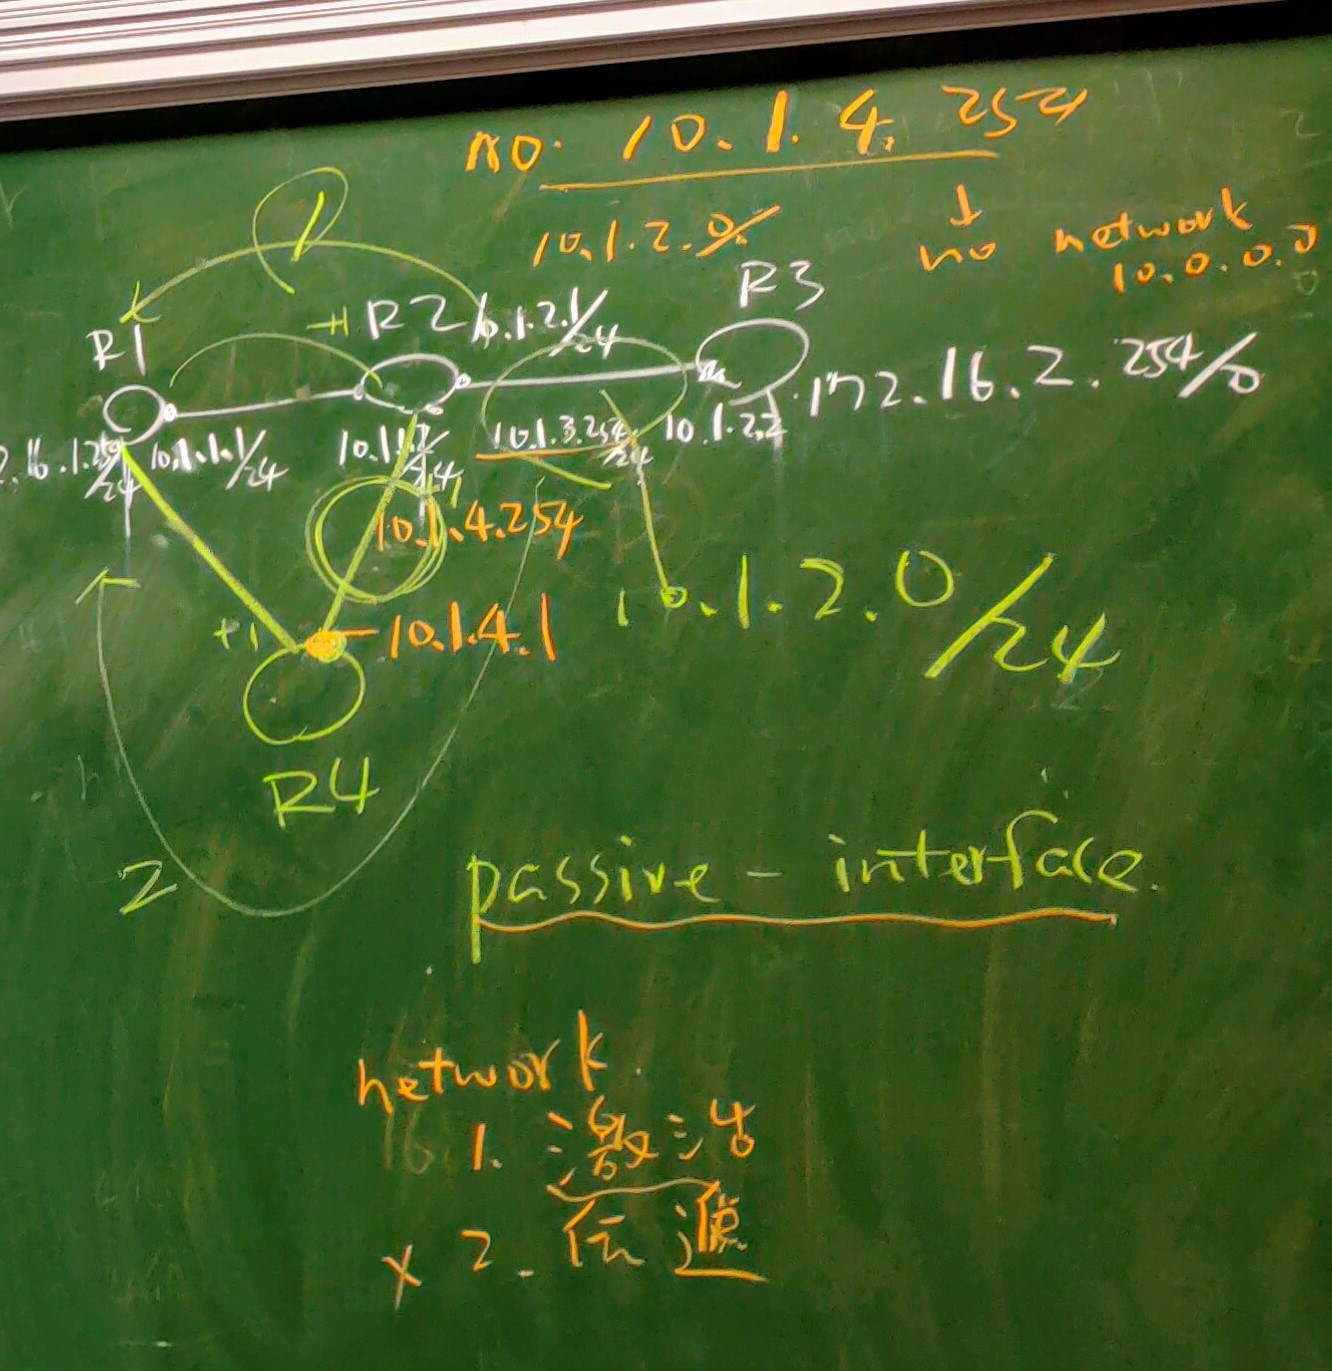 no. 10.1.4.254
10.1.2.0/
no network
10.0.0.0
R1
+1
R2
10.1.2.1/24
R3
172.16.2.254/
10.1.1.1/24
10.1.3.254/24
10.1.2.2
10.1.4.254
+1
10.1.4.1
10.1.2.0/24
R4
2
passive-interface
network
1. 激活
x 2. 伝遞